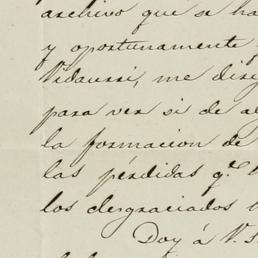 archivo que se ha
y oportunamente
Vidaurri, me dis
para ver si de al
la formacion de
las pérdidas q.e
los desgraciados
Doy á V. S.